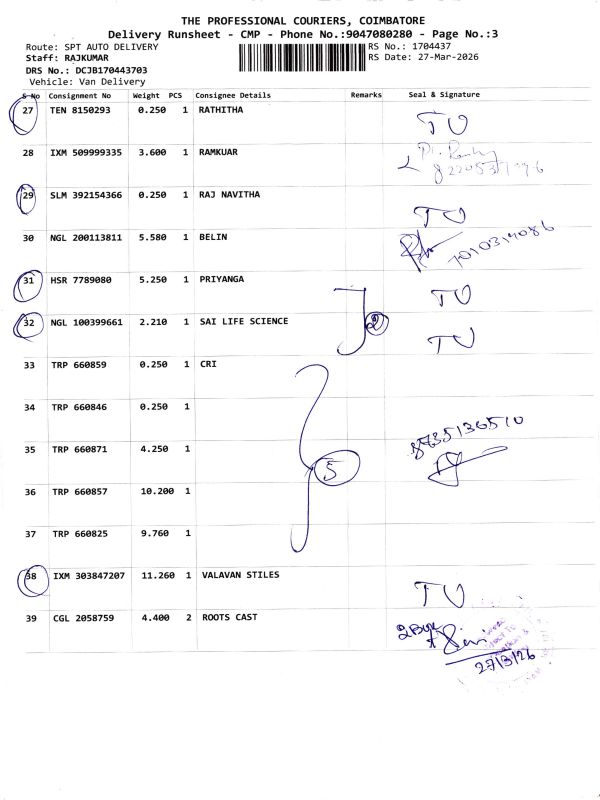 THE PROFESSIONAL COURIERS, COIMBATORE
Delivery Runsheet - CMP - Phone No.:9047080280 - Page No.:3
Route: SPT AUTO DELIVERY
RS No.: 1704437
Staff: RAJKUMAR
RS Date: 27-Mar-2026
DRS No.: DCJB170443703
Vehicle: Van Delivery
S No Consignment No Weight PCS Consignee Details Remarks Seal & Signature
27 TEN 8150293 0.250 1 RATHITHA TU
28 IXM 509999335 3.600 1 RAMKUAR
29 SLM 392154366 0.250 1 RAJ NAVITHA TU
30 NGL 200113811 5.580 1 BELIN 7010314086
31 HSR 7789080 5.250 1 PRIYANGA TU
32 NGL 100399661 2.210 1 SAI LIFE SCIENCE 2 TU
33 TRP 660859 0.250 1 CRI
34 TRP 660846 0.250 1
35 TRP 660871 4.250 1 5 8735136510
36 TRP 660857 10.200 1
37 TRP 660825 9.760 1
38 IXM 303847207 11.260 1 VALAVAN STILES TU
39 CGL 2058759 4.400 2 ROOTS CAST 2 Box
27/3/26